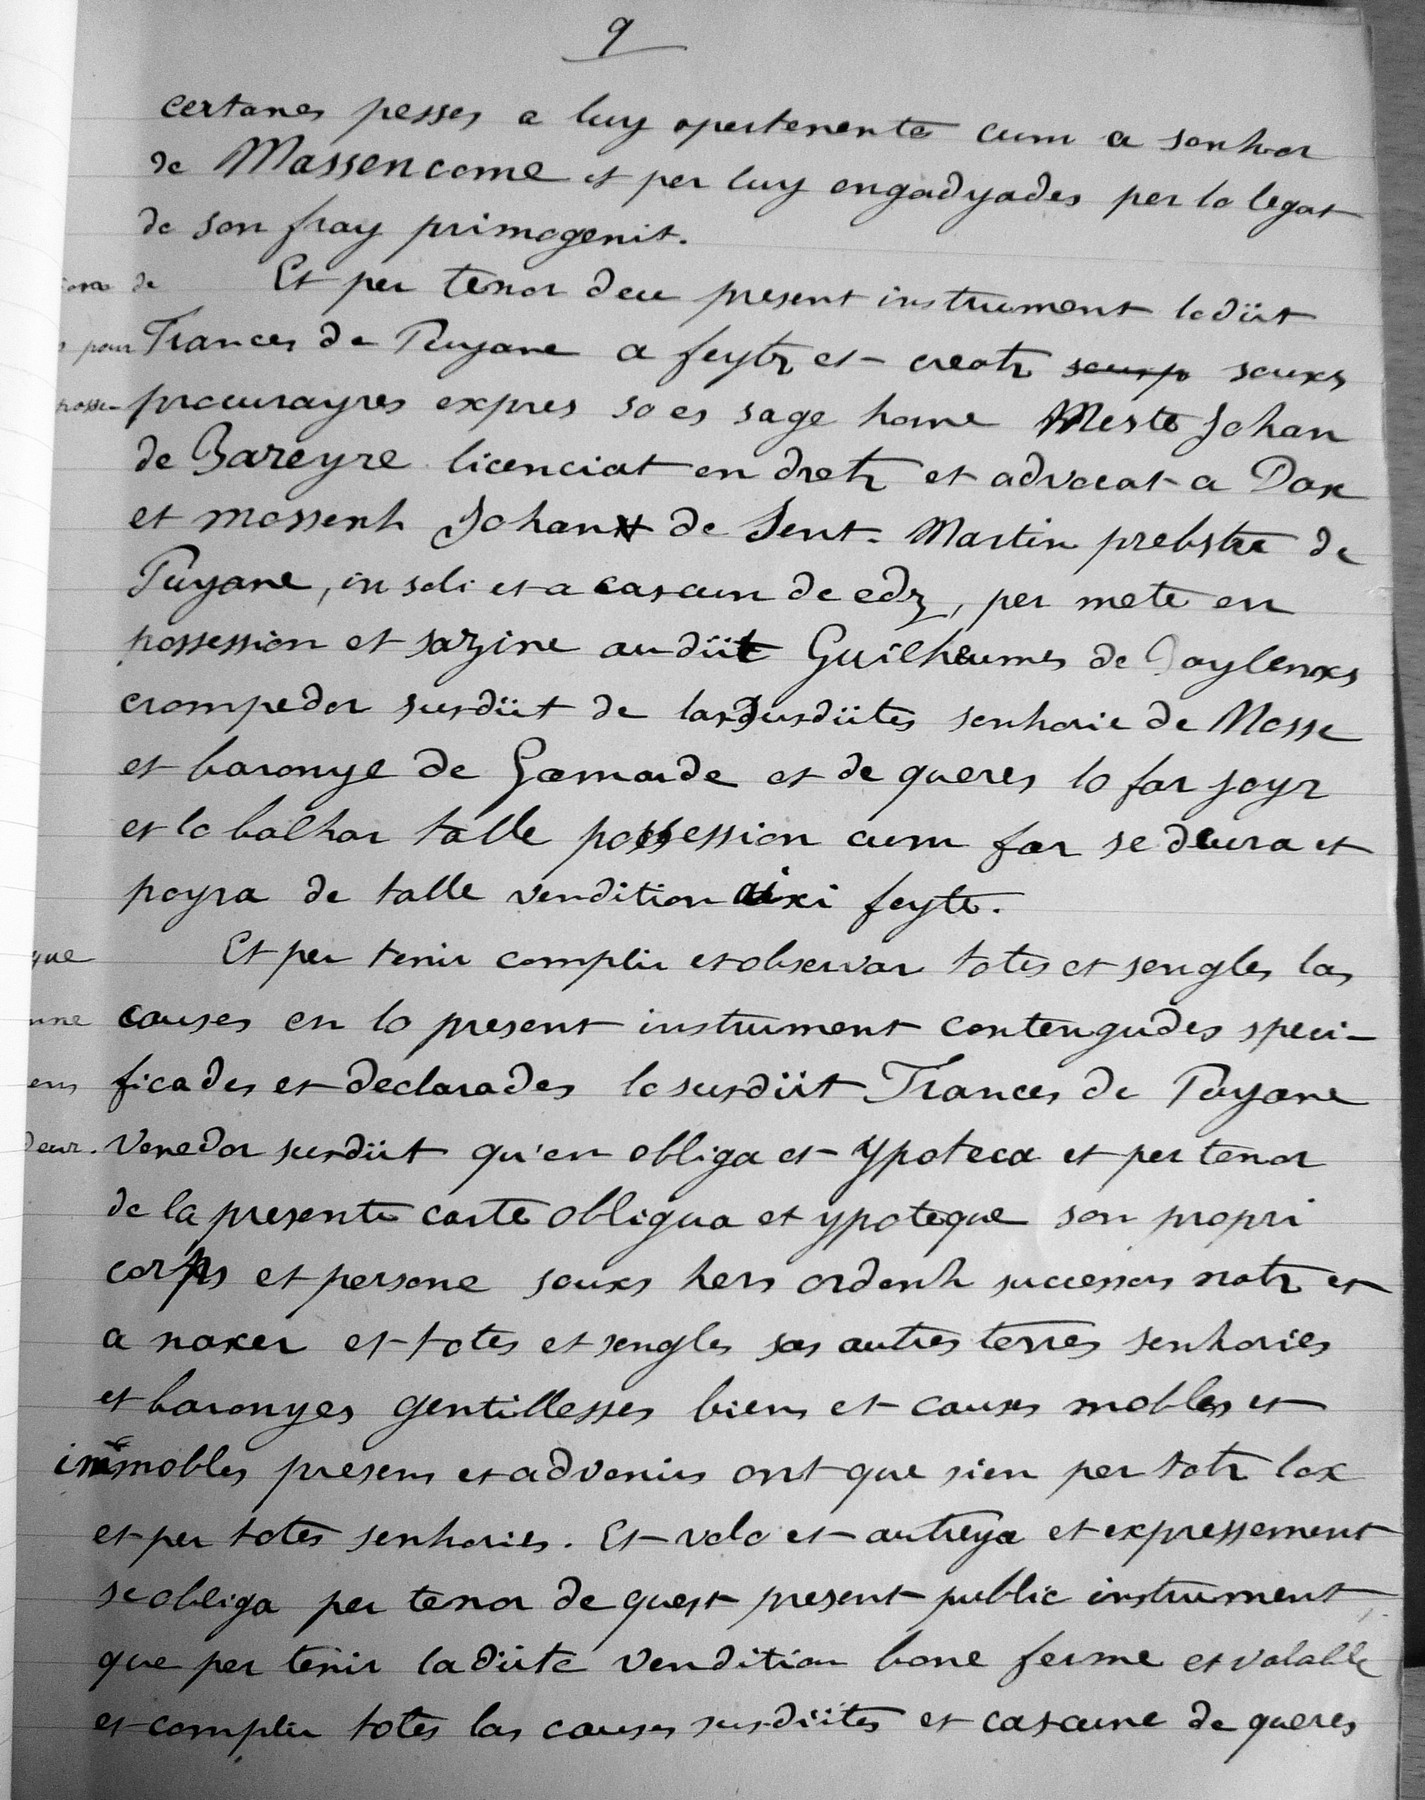 9
certanes pesses a luy apertenente cum a senhor
de Massencome et per luy engadyades per lo legat
de son fray primogenit.
de Et per tenor deu present instrument lodiit
pour Frances de Puyane a feytz et creatz soup souxs
procurayres expres so es sage home Meste Johan
de Bareyre licenciat en dretz et advocat a Dax
et mossenh Johan de Sent-Martin prebstre de
Puyane, in soli et a cascun de edz, per mete en
possession et sazine audiit Guilheumes de Baylenxs
crompedor susdiit de las susdiites senhorie de Mosse
et baronye de Gamarde et de queres lo far joyr
et lo balhar talle possession cum far se deura et
poyra de talle vendition aixi feyte.
que Et per tenir complir et observar totes et sengles las
une causes en lo present instrument contengudes speci-
ens ficades et declarades lo susdiit Frances de Puyane
deur. Venedor susdiit qu'en obliga et ypoteca et per tenor
de la presente carte obligua et ypoteque son propri
corps et persone souxs hers ordenh successors natz et
a naxer et totes et sengles sas autres terres senhories
et baronyes gentillesses biens et causes mobles et
immobles presens et advenirs ont que sien per totz lox
et per totes senhories. Et volo et autreya et expressement
se obliga per tenor de quest present public instrument
que per tenir ladiite vendition bone ferme et valable
et complir totes las causes susdiites et cascune de queres